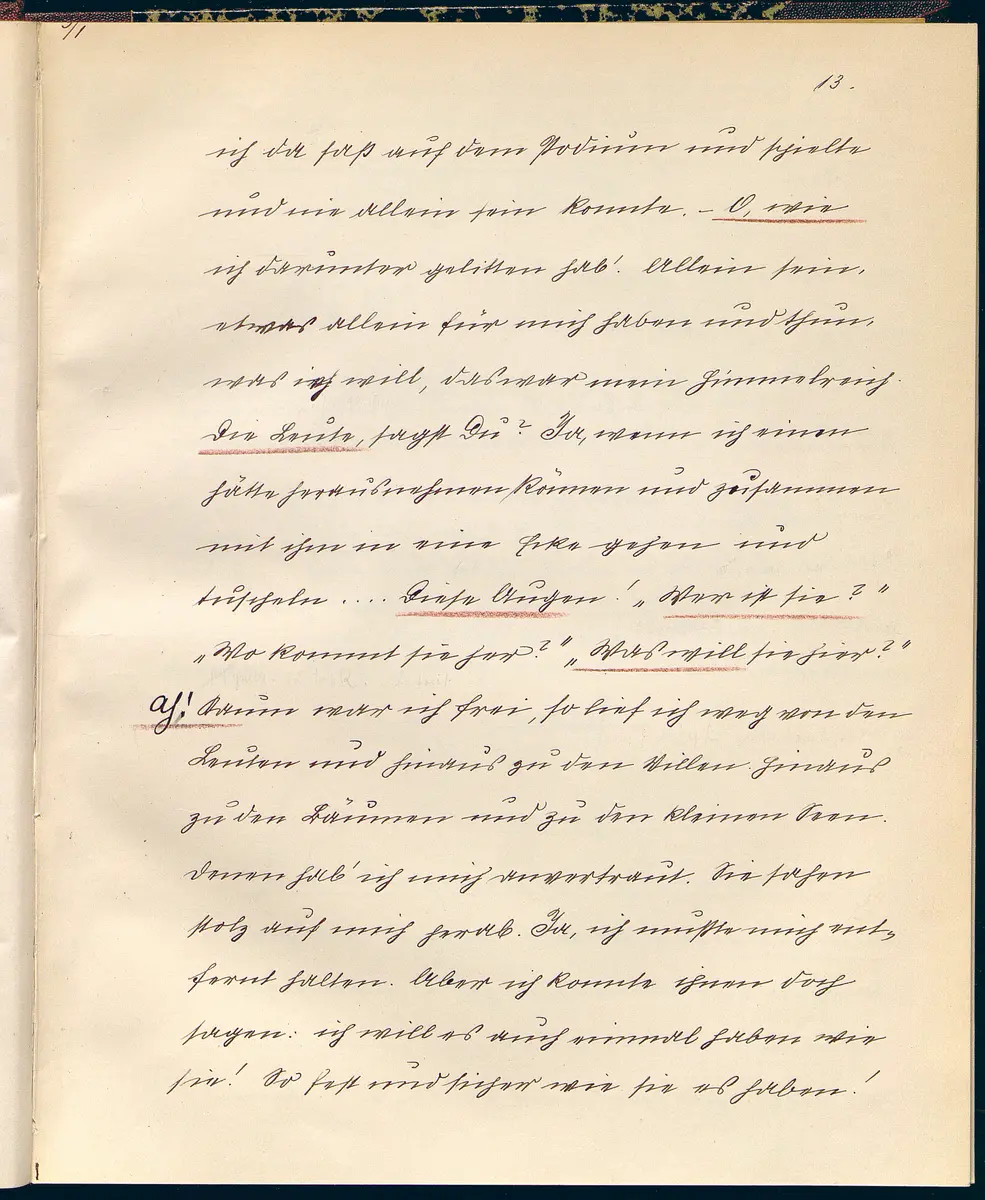 13.
ich da saß auf dem Podium und spielte
und nie allein sein konnte. – O, wie
ich darunter gelitten hab'. Allein sein,
etwas allein für mich haben und thun,
was ich will, das war mein Himmelreich.
Die Leute, sagst Du? Ja, wenn ich einen
hätte herausnehmen können und zusammen
mit ihm in eine Ecke gehen und
tuscheln .... Diese Augen! „Wer ist sie?"
„Wo kommt sie her?" „Was will sie hier?"
Ah! Kaum war ich frei, so lief ich weg von den
Leuten und hinaus zu den Villen. Hinaus
zu den Bäumen und zu den kleinen Seen.
Denen hab' ich mich anvertraut. Sie sahen
stolz auf mich herab. Ja, ich mußte mich ent-
fernt halten. Aber ich konnte ihnen doch
sagen: ich will es auch einmal haben wie
sie! So fest und sicher wie sie es haben!